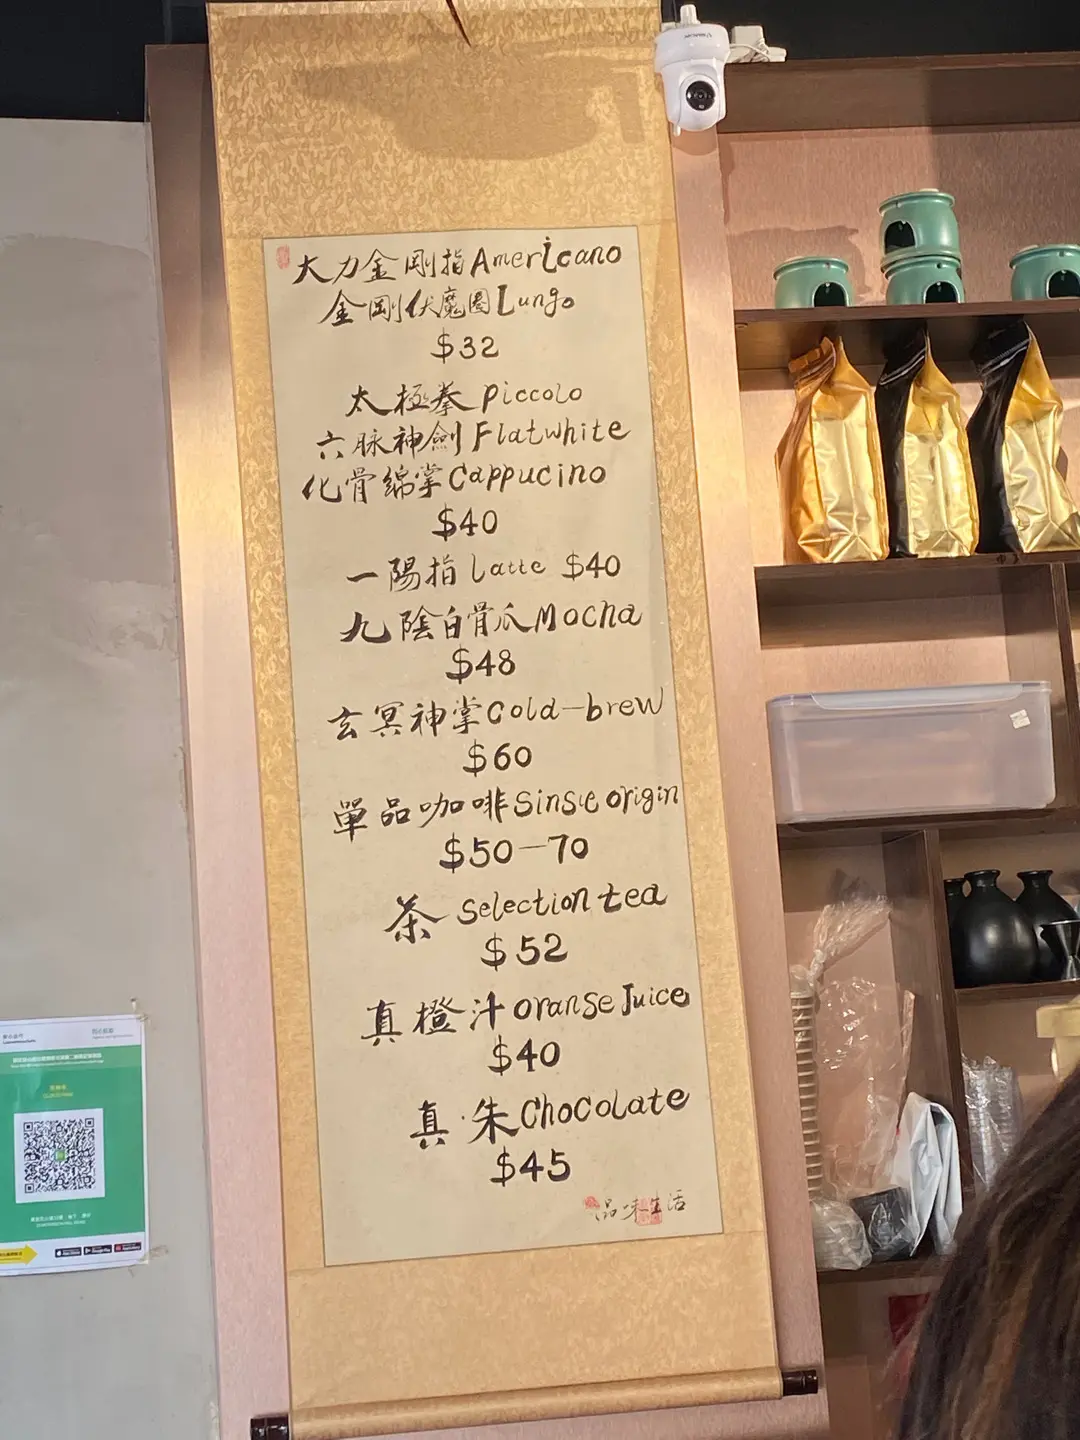 大力金剛指Americano
金剛伏魔圈Lungo
$32
太極拳piccolo
六脉神劍Flatwhite
化骨綿掌Cappucino
$40
一陽指Latte $40
九陰白骨爪Mocha
$48
玄冥神掌Cold-brew
$60
單品咖啡Single origin
$50-70
茶 Selection tea
$52
真橙汁Orange Juice
$40
真·朱Chocolate
$45
品味生活